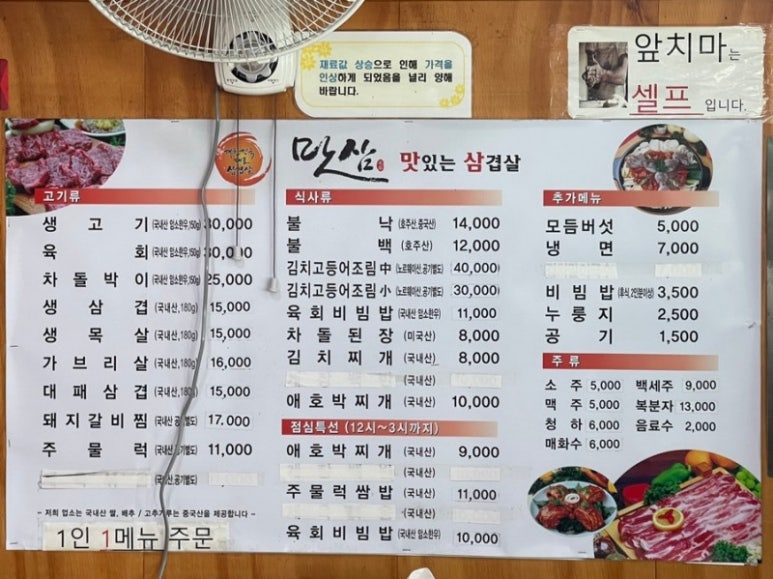 재료값 상승으로 인해 가격을
인상하게 되었음을 널리 양해
바랍니다.
앞치마는
셀프 입니다.
맛삼 맛있는 삼겹살
고기류
생고기 (국내산 암소한우,150g) 30,000
육회 (국내산 암소한우,150g) 30,000
차돌박이 (국내산 암소한우,150g) 25,000
생삼겹 (국내산, 180g) 15,000
생목살 (국내산, 180g) 15,000
가브리살 (국내산, 180g) 16,000
대패삼겹 (국내산, 180g) 15,000
돼지갈비찜 (국내산,공기별도) 17.000
주물럭 (국내산,공기별도) 11,000
(국내산,공기별도)
- 저희 업소는 국내산 쌀, 배추 / 고추가루는 중국산을 제공합니다 -
1인 1메뉴 주문
식사류
불낙 (호주산,중국산) 14,000
불백 (호주산) 12,000
김치고등어조림 中 (노르웨이산,공기별도) 40,000
김치고등어조림 小 (노르웨이산,공기별도) 30,000
육회비빔밥 (국내산 암소한우) 11,000
차돌된장 (미국산) 8,000
김치찌개 (국내산) 8,000
(국내산)
애호박찌개 (국내산) 10,000
점심특선 (12시~3시까지)
애호박찌개 (국내산) 9,000
(국내산)
주물럭쌈밥 (국내산) 11,000
(국내산)
육회비빔밥 (국내산 암소한우) 10,000
추가메뉴
모듬버섯 5,000
냉면 7,000
비빔밥 (후식, 2인분이상) 3,500
누룽지 2,500
공기 1,500
주류
소주 5,000 백세주 9,000
맥주 5,000 복분자 13,000
청하 6,000 음료수 2,000
매화수 6,000